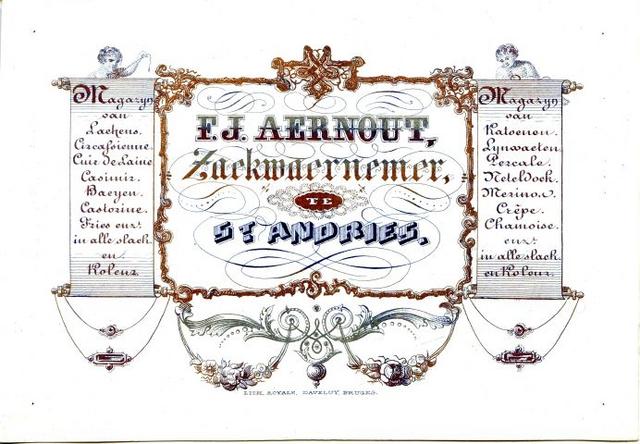 Magazyn
van
Lachens.
Circassienne.
Cuir de Laine
Casimir.
Baeyen.
Castorine.
Fries enz.
in alle slach
en
Koleur.
F. J. AERNOUT,
Zaekwaernemer,
TE
ST ANDRIES.
Magazyn
van
Katoenen.
Lynwaeten
Percale.
Neteldoek.
Merinos.
Crêpe.
Chamoise.
enz.
in alle slach
en Koleur.
LITH. ROYALE, DAVELUY, BRUGES.